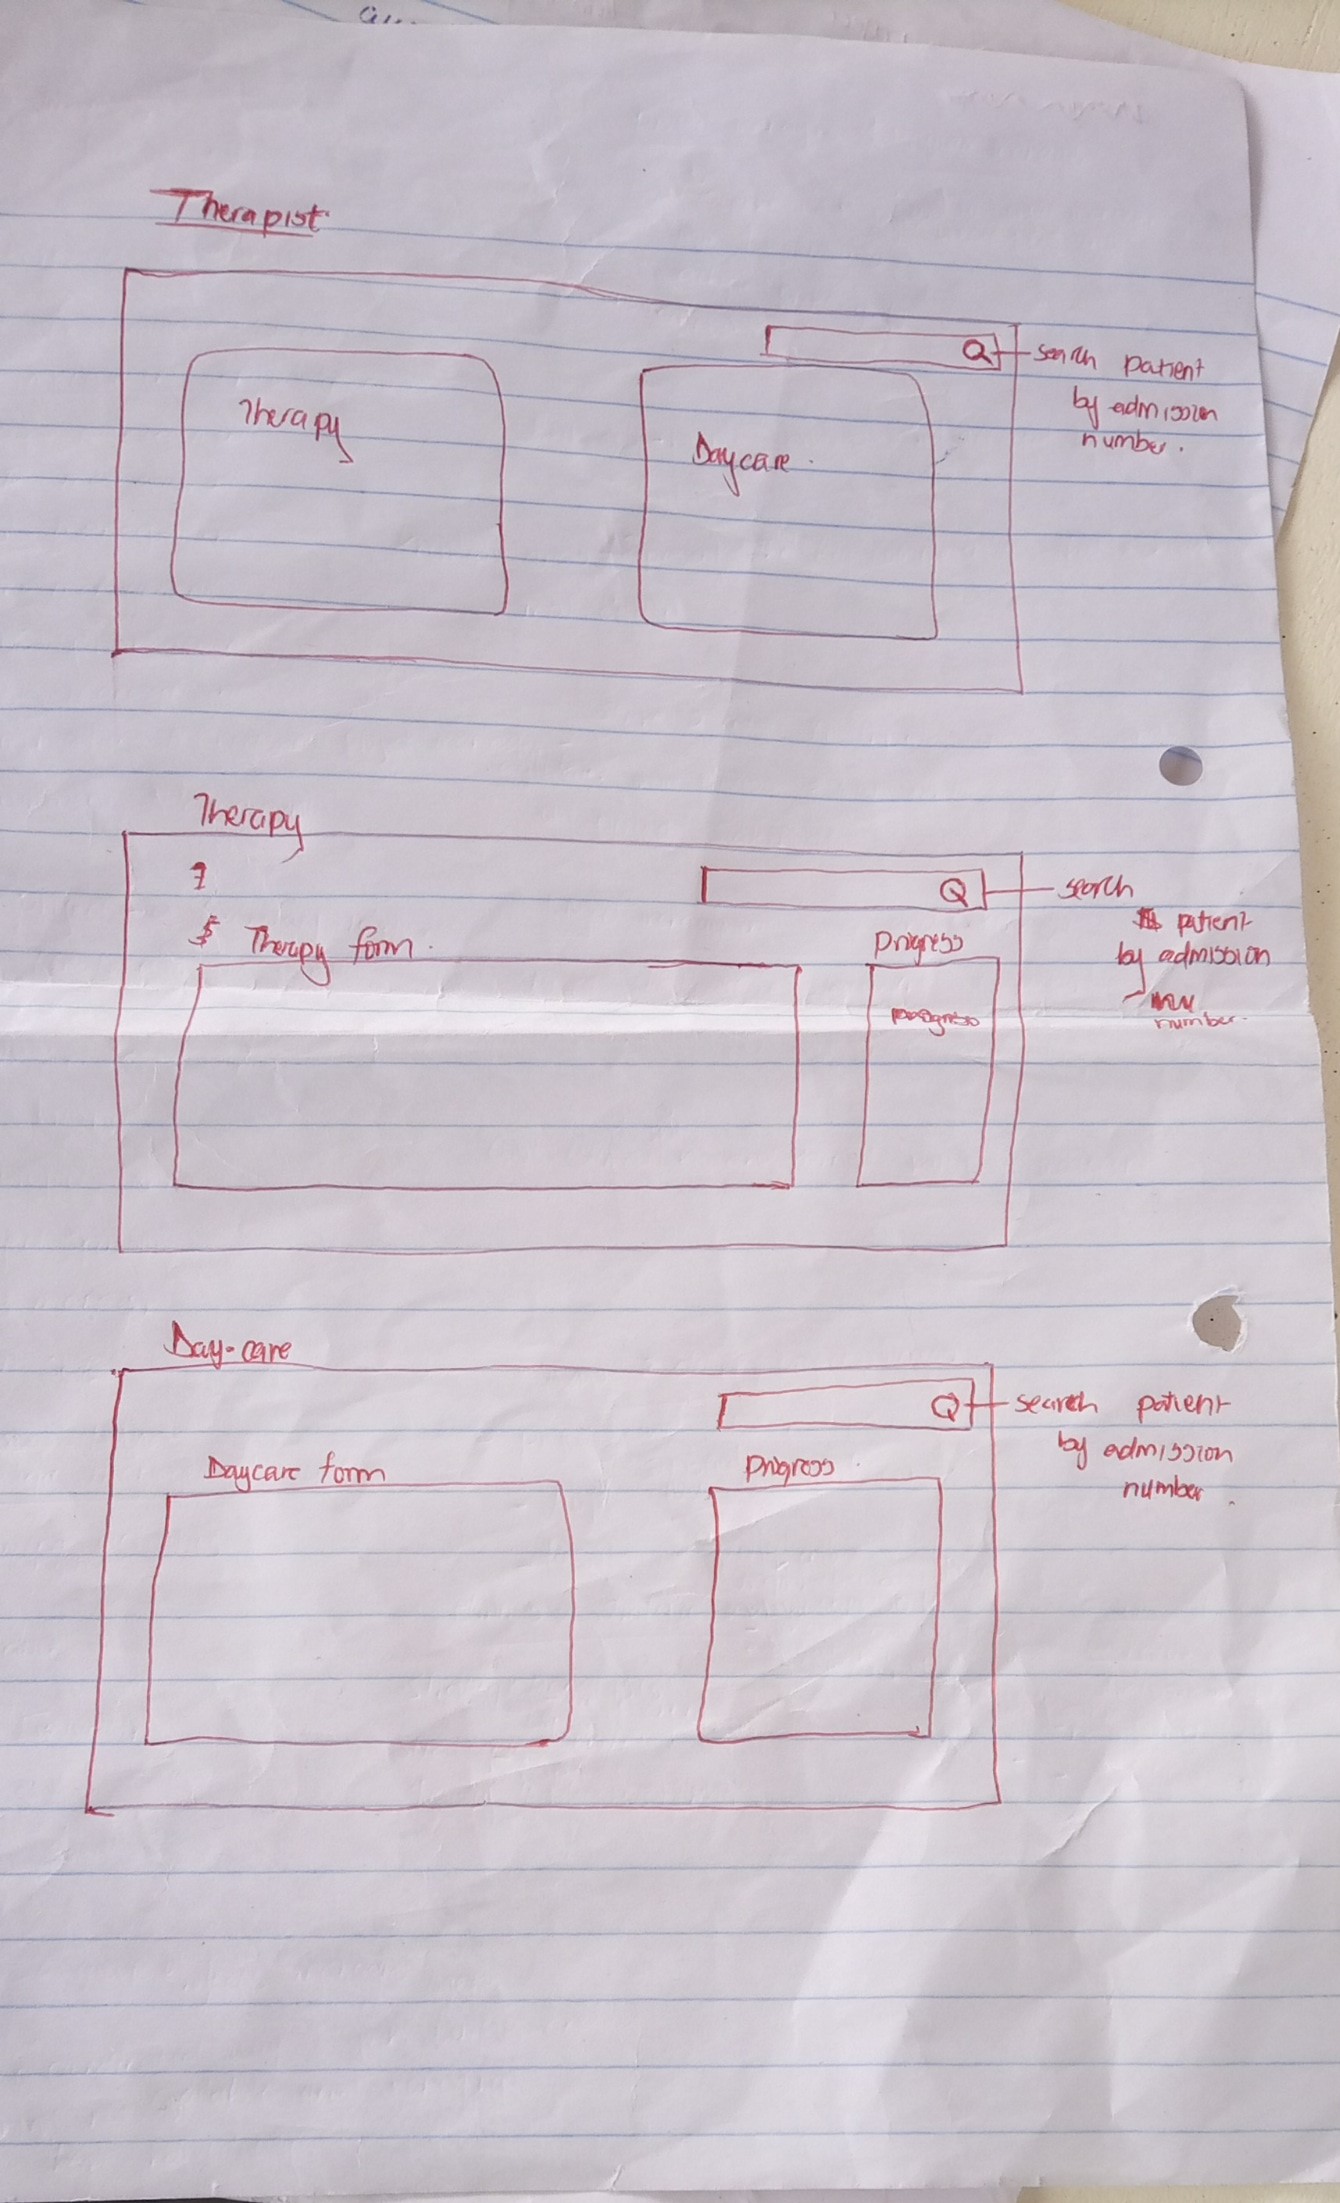 Therapist
search patient
by admission
number.
Therapy
Daycare.
Therapy
search
patient
by admission
number.
Therapy form.
Progress
progress
Day-care
search patient
by admission
number.
Daycare form
Progress.